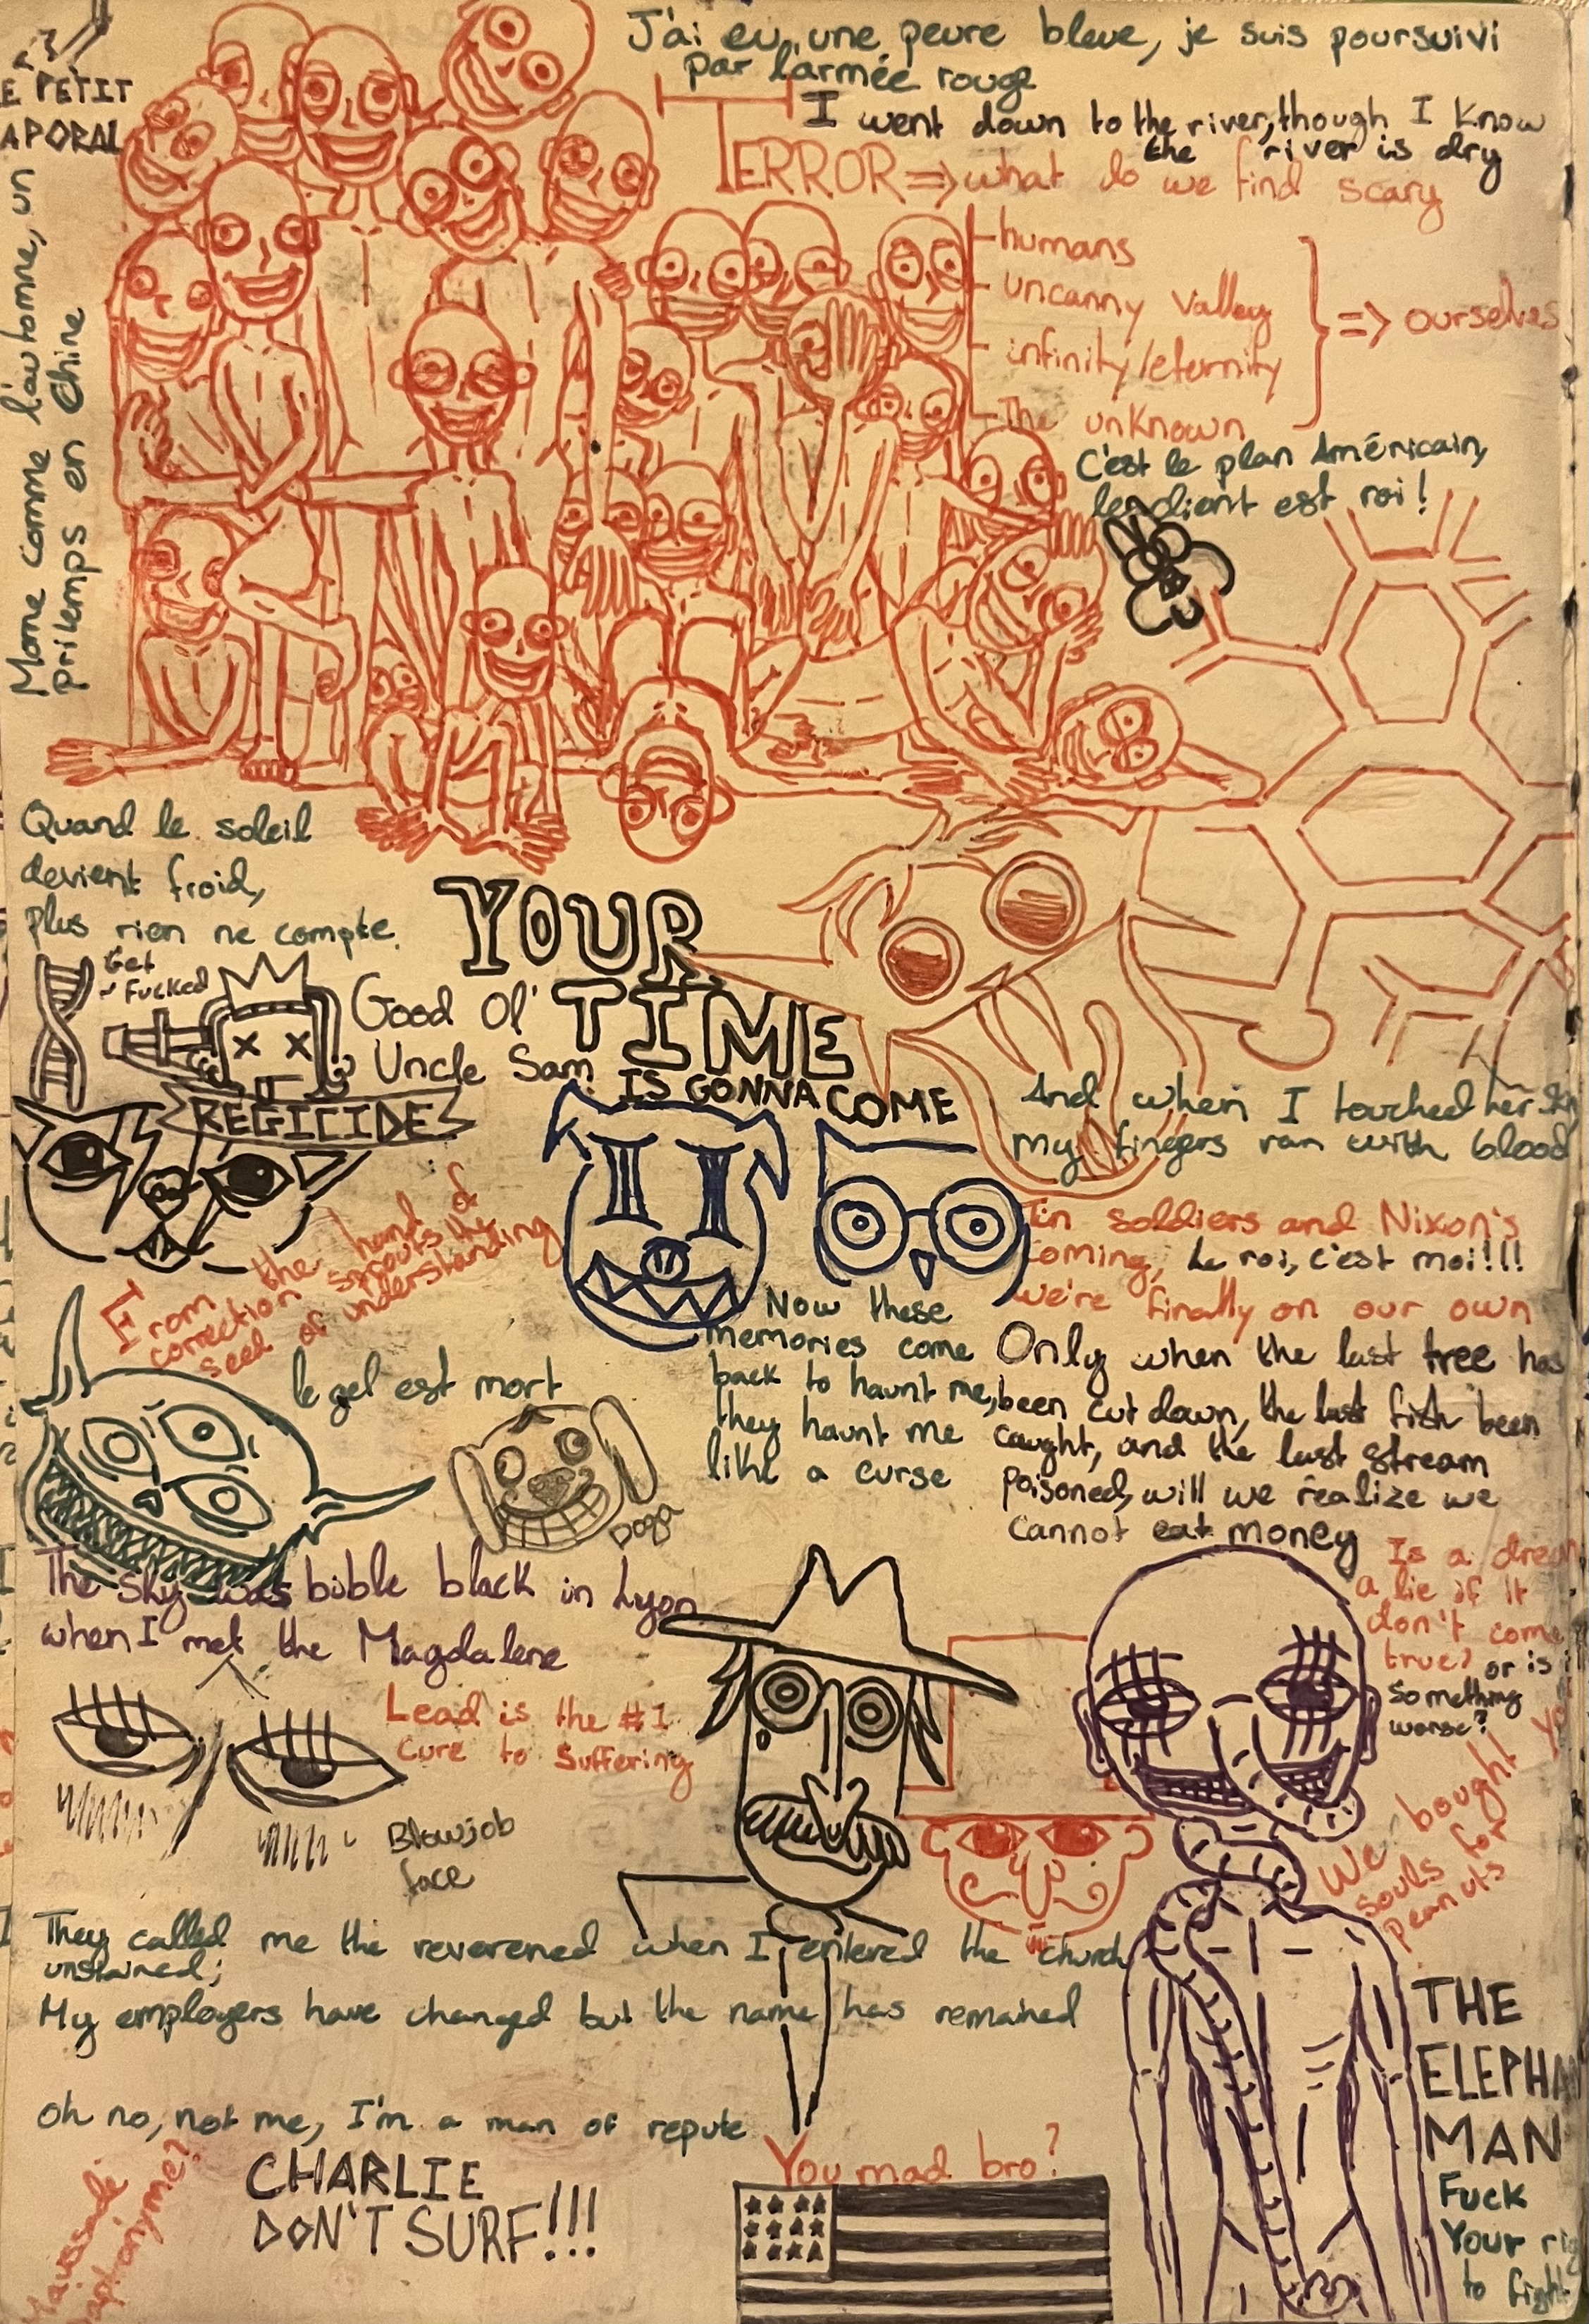 LE PETIT
CAPORAL
Morne comme l'automne, un
printemps en Chine
J'ai eu une peure bleue, je suis poursuivi
par l'armée rouge
I went down to the river, though I know
the river is dry
TERROR => what do we find scary
humans
uncanny valley
infinity/eternity
The unknown
=> ourselves
C'est le plan Américain,
le client est roi!
Quand le soleil
devient froid,
plus rien ne compte.
Get
Fucked
Good Ol'
Uncle Sam
REGICIDE
YOUR
TIME
IS GONNA COME
And when I touched her skin
my fingers ran with blood
From the hand of
correction sprouts the
seed of understanding
Tin soldiers and Nixon's
coming, Le roi, c'est moi!!!
we're finally on our own
le gel est mort
Doga
Now these
memories come
back to haunt me,
they haunt me
like a curse
Only when the last tree has
been cut down, the last fish been
caught, and the last stream
poisoned, will we realize we
cannot eat money
The sky was bible black in Lyon
when I met the Magdalene
Is a dream
a lie if it
don't come
true? or is it
Something
worse?
Lead is the #1
cure to suffering
Blowjob
face
We bought
souls for
peanuts
They called me the reverened when I entered the church
unstained;
My employers have changed but the name has remained
THE
ELEPHANT
MAN
oh no, not me, I'm a man of repute
CHARLIE
DON'T SURF!!!
You mad bro?
Fuck
Your right
to fight
Maussade